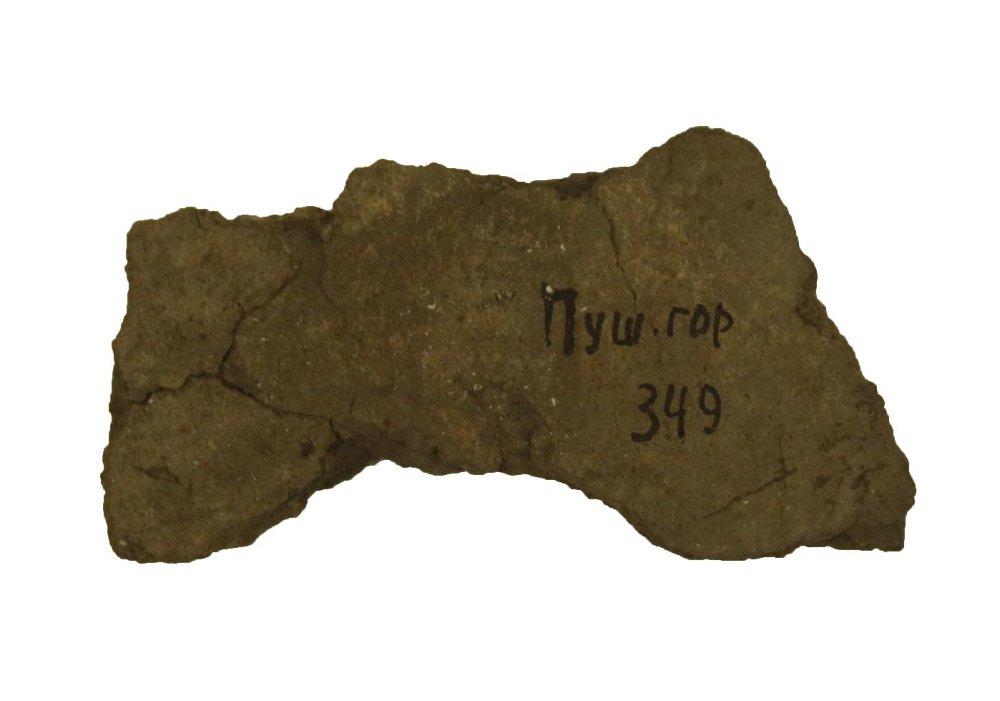 Пуш.гор
349